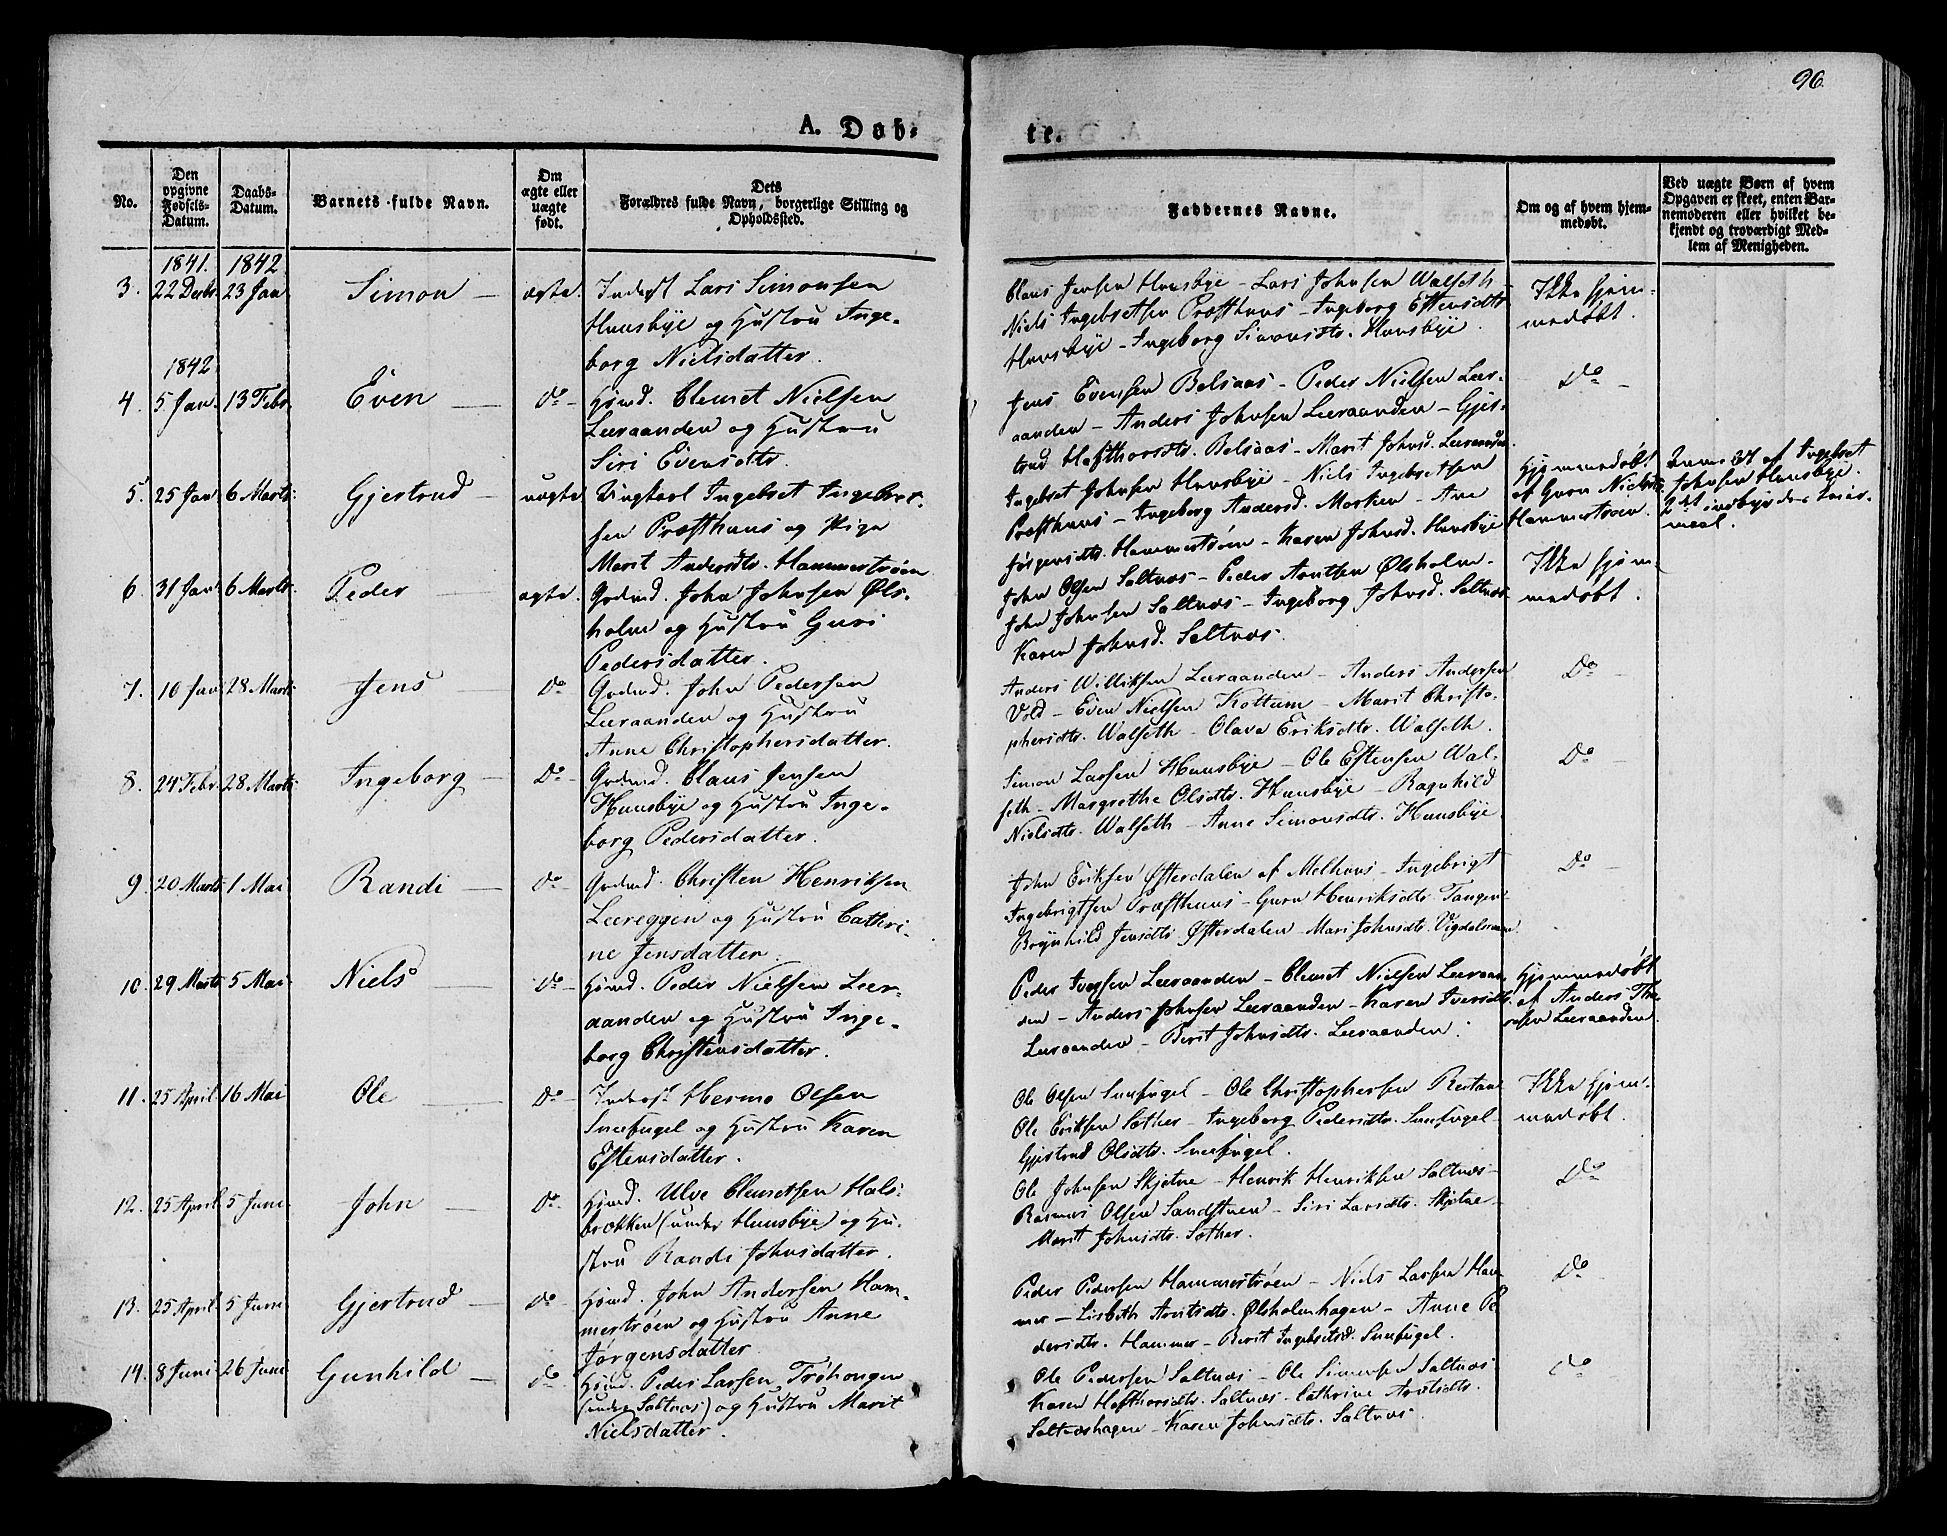 96.
A. Døb-
te.
No.
Den opgivne Fødsels-Datum.
Daabs-Datum.
Barnets fulde Navn.
Om ægte eller uægte født.
Dets Forældres fulde Navn, borgerlige Stilling og Opholdssted.
Faddernes Navne.
Om og af hvem hjem-medøbt.
Ved uægte Børn af hvem Opgaven er skeet, enten Bar-nemoderen eller hvilket be-kjendt og troværdigt Med-lem af Menigheden.
1841. 1842.
3. 22 Decbr 23 Jan Simon — ægte. Inderst Lars Simonsen
Huusbye og Hustru Inge-
borg Nielsdatter.
Claus Jensen Huusbye - Lars Johnsen Walseth
Niels Ingebretsen Præsthuus - Ingeborg Estensdtr
Huusbye - Ingeborg Simonsdtr. Huusbye.
Ikke hjem-
medøbt.
1842.
4. 5 Jan. 13 Febr. Even — Do - Hűmd. Clemet Nielsen
Leeraanden og Hustru
Siri Evensdtr.
Jens Evensen Belsaas - Peder Nielsen Leer-
aanden - Anders Johnsen Leeraanden - Gjer-
trud Hafthorsdtr. Belsaas - Marit Johnsd. Leeraanden.
Do -
5. 25 Jan 6 Marts. Gjertrud — uægte Ungkarl Ingebret Ingebret-
sen Præsthuus og Pige
Marit Andersdtr. Hammertrøen
Ingebret Johnsen Huusbye - Niels Ingebretsen
Præsthuus - Ingeborg Andersd. Marken - Ane
Jørgensdtr. Hammertrøen - Karen Johnsd. Huusbye
Hjemmedøbt
af Guru Nielsdtr.
Hammertrøen.
af Ingebret
Johnsen Huusbye.
6. 31 Jan 6 Marts. Peder — ægte. Gdmd. John Johnsen Øls-
holm og Hustru Guri
Pedersdatter.
John Olsen Saltnæs - Peder Arntsen Ølsholm -
John Johnsen Saltnæs - Ingeborg Johnsd. Saltnæs
Karen Johnsd. Saltnæs.
Ikke hjem-
medøbt.
7. 10 Jan 28 Marts Jens — Do Gdmd. John Pedersen
Leeraanden og Hustru
Anne Christophersdatter.
Anders Willıksen Leeraanden - Anders Andersen
Vold - Even Nielsen Kottum - Marit Christo-
phersdtr. Walseth - Olava Eriksdtr. Walseth.
Do -
8. 24 Febr. 28 Marts Ingeborg — Do - Gdmd. Claus Jensen
Huusbye og Hustru Inge-
borg Pedersdatter.
Simon Larsen Huusbye - Ole Estensen Wal-
seth - Margrethe Olsdtr. Huusbye - Ragnhild
Nielsdtr. Walseth - Anne Simonsdtr. Huusbye.
Do -
9. 20 Marts 1 Mai Randi — Do - Gdmd. Christen Henriksen
Leereggen og Hustru Cathri-
ne Jensdatter.
John Eriksen Østerdalen af Melhuus - Ingebrigt
Ingebrigtsen Præsthuus - Guru Henriksdtr. Tangen
Brynhild Jensdtr. Østerdalen - Mari Johnsdtr.
Do -
10. 29 Marts 5 Mai Niels — Do - Hűmd. Peder Nielsen Leer-
aanden og Hustru Inge-
borg Christensdatter.
Peder Iversen Leeraanden - Clemet Nielsen Leeraan-
den - Anders Johnsen Leeraanden - Karen Iversdtr.
Leeraanden - Berit Johnsdtr. Leeraanden.
Hjemmedøbt
af Anders
Leeraanden.
11. 25 April 16 Mai Ole — Do - Inderst Hermo Olsen
Sneefugel og Hustru Karen
Estensdatter.
Ole Olsen Sneefugel - Ole Christophersen
Ole Eriksen Sæther - Ingeborg Pedersdtr. Sneefugel -
Gjertrud Olsdtr. Sneefugel.
Ikke hjem-
medøbt.
12. 25 April 5 Juni John — Do. Hűmd. Ulve Clemetsen Hals-
brækken (under Huusbye) og Hu-
stru Randi Johnsdatter.
Ole Johnsen Skjetne - Henrik Henriksen Saltnæs -
Rasmus Olsen Sandstuen - Siri Larsdtr. Skjetne -
Marit Johnsdtr. Sæther.
Do -
13. 25 April 5 Juni Gjertrud — Do - Hűmd. John Andersen Ham-
mertrøen og Hustru Anne
Jørgensdatter
Peder Pedersen Hammertrøen - Niels Larsen Ham-
mer - Lisbeth Arntsdtr. Ølsholmhagen - Anne Pe-
dersdtr. Hammer - Berit Ingebretsd. Sneefugel.
Do -
14. 8 Juni 26 Juni Gunhild — Do Hűmd. Peder Larsen Trøhaugen
(under Saltnæs) og Hustru Marit
Nielsdatter.
Ole Pedersen Saltnæs - Ole Simonsen Saltnæs
Karen Hafthorsdtr. Saltnæs - Cathrine Arntsdtr.
Saltnæshagen - Karen Johnsdtr. Saltnæs.
Do